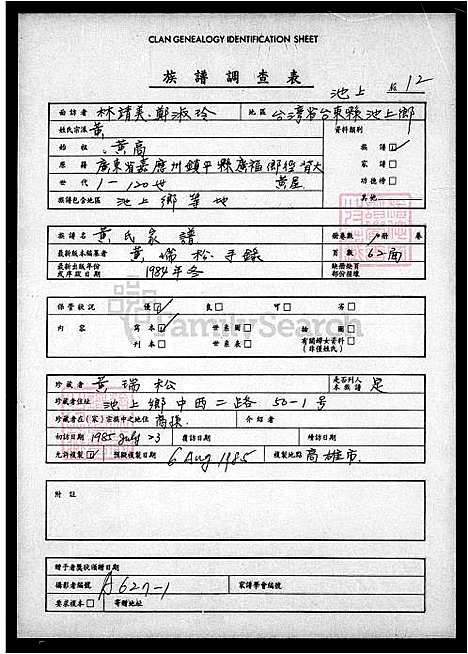 CLAN GENEALOGY IDENTIFICATION SHEET
族譜調查表
池上 12
面訪者 林靖美、鄭淑玲 地區 台灣省台東縣池上鄉
姓氏宗派 黃 資料類別
始祖 黃 族譜☑
原籍 廣東省嘉應州鎮平縣廣福鄉徑背大黃屋 家譜□
世代 1-120世 功德榜□
族譜包含地區 池上鄉等地 其他
族譜名 黃氏家譜 冊卷數 1冊 卷
最新版本編纂者 黃瑞松手錄 頁數 62面
最新出版年份或序跋日期 1984年冬 缺冊缺頁部份接續
保管狀況 優☑ 良□ 可□ 劣□
內容 寫本☑ 世系圖□ 插圖□
刊本□ 世系表□ 有關婦女資料□(非僅姓氏)
珍藏者 黃瑞松 是否列入本族譜 是
珍藏者住址 池上鄉中西二路50-1號
珍藏者在(家)宗族中之地位 裔孫 介紹者
初訪日期 1985 July 23 復訪日期 續訪日期
允許複製☑ 預擬複製日期 6 Aug 1985 複製地點 高雄市
附註
贈予者獎狀頒贈日期
攝影者編號 A627-1 家譜學會編號
要求複本□ 寄贈地址
FamilySearch